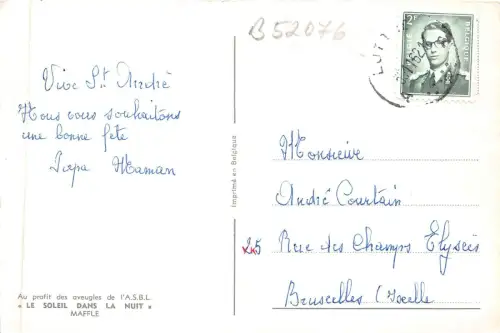 B52076
2F
BELGIQUE
Vive St André
Nous vous souhaitons
une bonne fête
Papa Maman
Imprimé en Belgique
Monsieur
André Courtain
25 Rue des Champs Elysées
Bruxelles (Ixelle
Au profit des aveugles de l'A.S.B.L.
« LE SOLEIL DANS LA NUIT »
MAFFLE